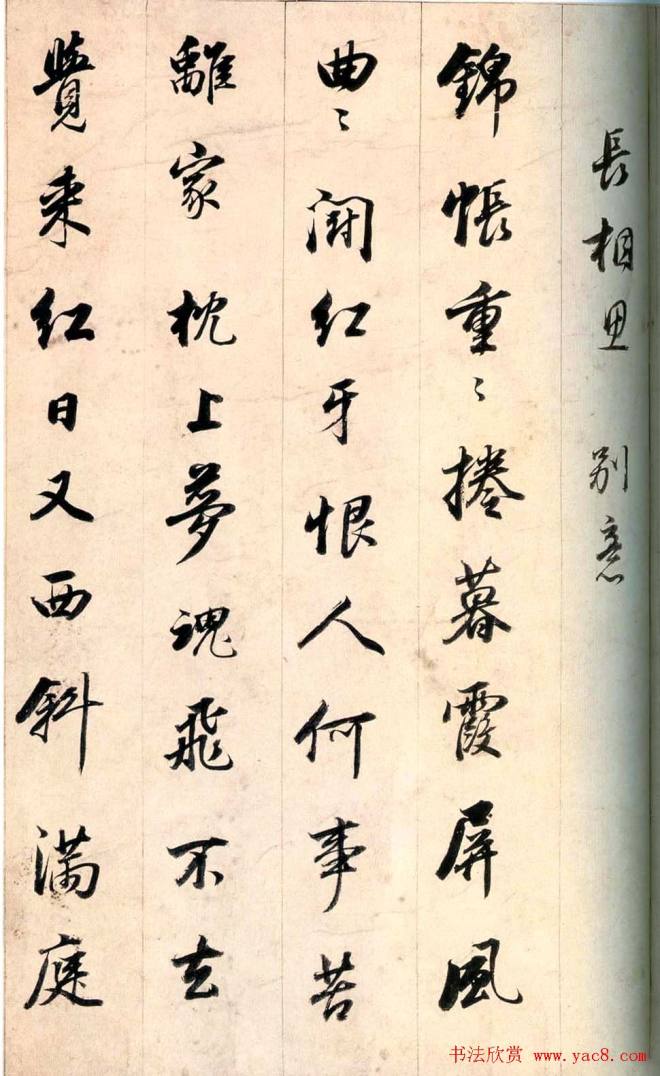 長相思 別意
錦帳重〻捲暮霞屏風
曲〻鬪紅牙恨人何事苦
離家枕上夢魂飛不去
覺來紅日又西斜滿庭
书法欣赏 www.yac8.com